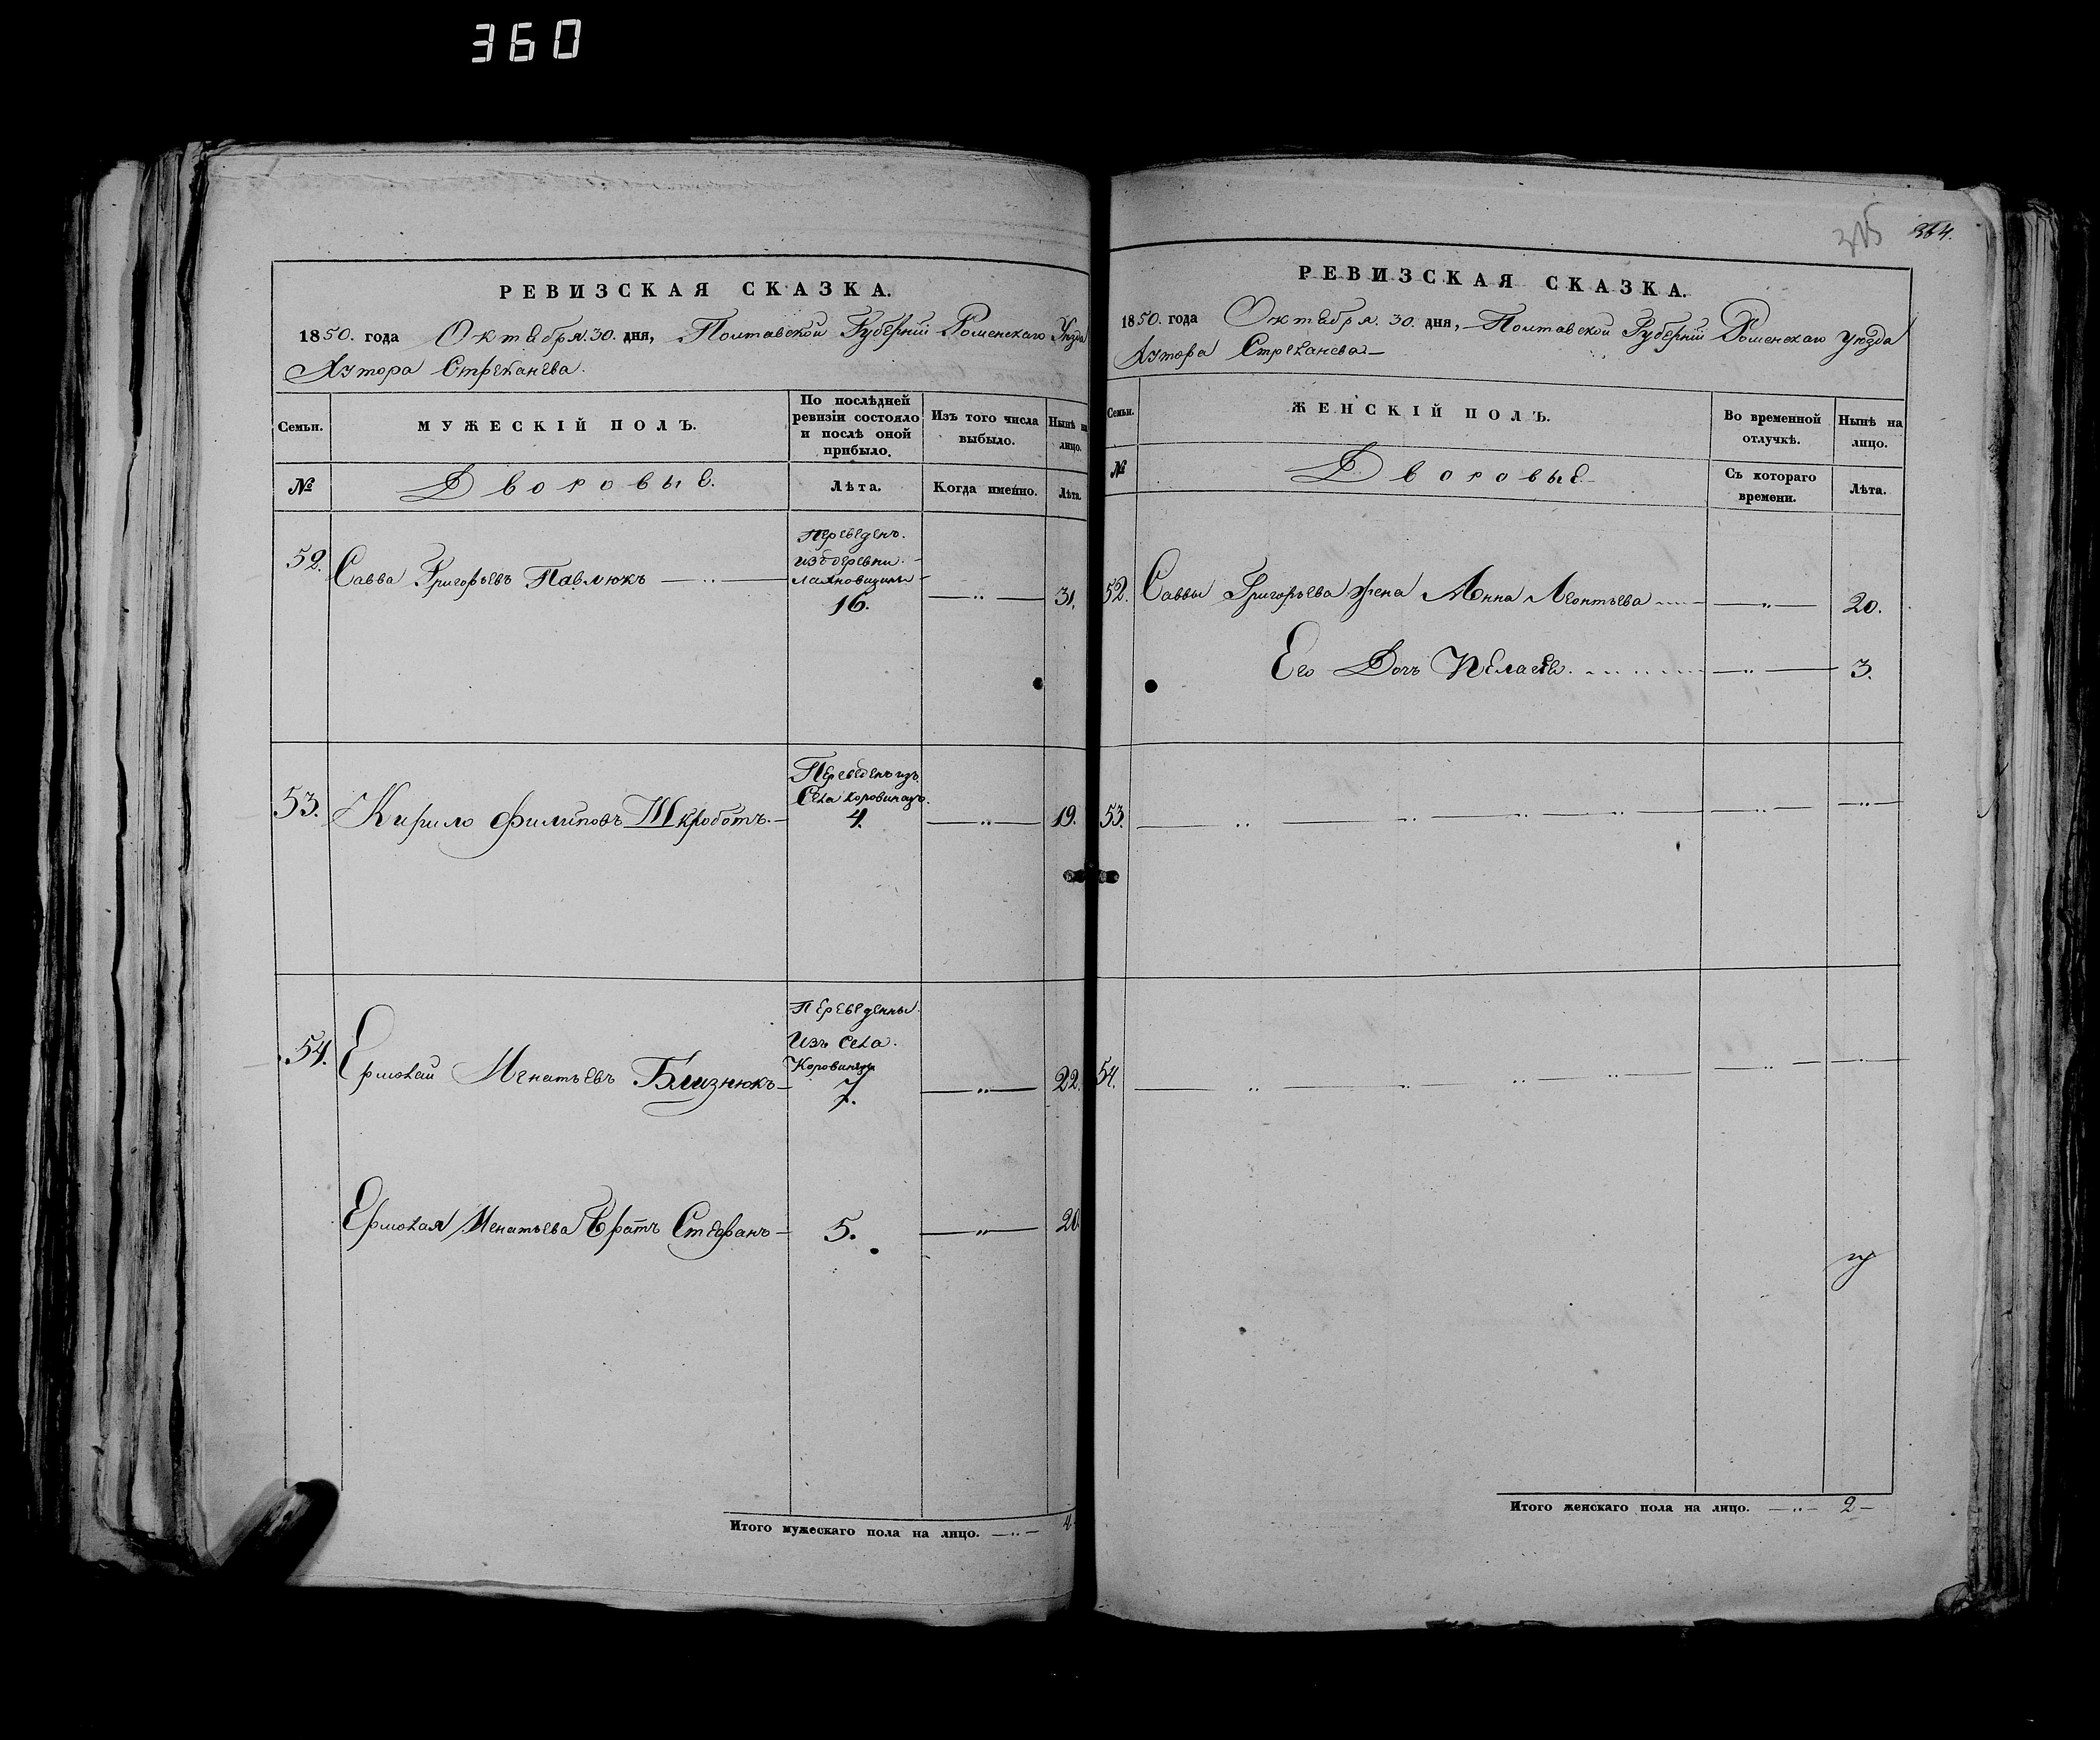 360
364.
РЕВИЗСКАЯ СКАЗКА.
1850. года Октября. 30. дня, Полтавской Губерніи Роменскаго Уѣзда
Хутора
Семьи.
МУЖЕСКІЙ ПОЛЪ.
По послѣдней ревизіи состояло и послѣ оной прибыло.
Изъ того числа выбыло.
Нынѣ на лицо.
№
Дворовые.
Лѣта.
Когда именно.
Лѣта.
52. Савва Григорьевъ Павлюкъ
Переведенъ.
изъ деревни
16.
31.
53. Кирило Филиповъ Шкроботъ.
Переведенъ изъ
Села Коровинецъ.
4.
19.
54. Ермолай Игнатьевъ Близнюкъ
Переведенны
Изъ Села
Коровинецъ
7.
22.
Ермолая Игнатьева Братъ Стефанъ
5.
20
Итого мужескаго пола на лицо. 4.
РЕВИЗСКАЯ СКАЗКА.
1850. года Октября. 30. дня, Полтавской Губерніи Роменскаго Уѣзда
Хутора
Семьи.
ЖЕНСКІЙ ПОЛЪ.
Во временной отлучкѣ.
Нынѣ на лицо.
№
Дворовые.
Съ котораго времени.
Лѣта.
52. Саввы Григорьева жена Анна Леонтьева 20.
Его Дочь Пелагея. 3.
53.
54.
Итого женскаго пола на лицо. 2